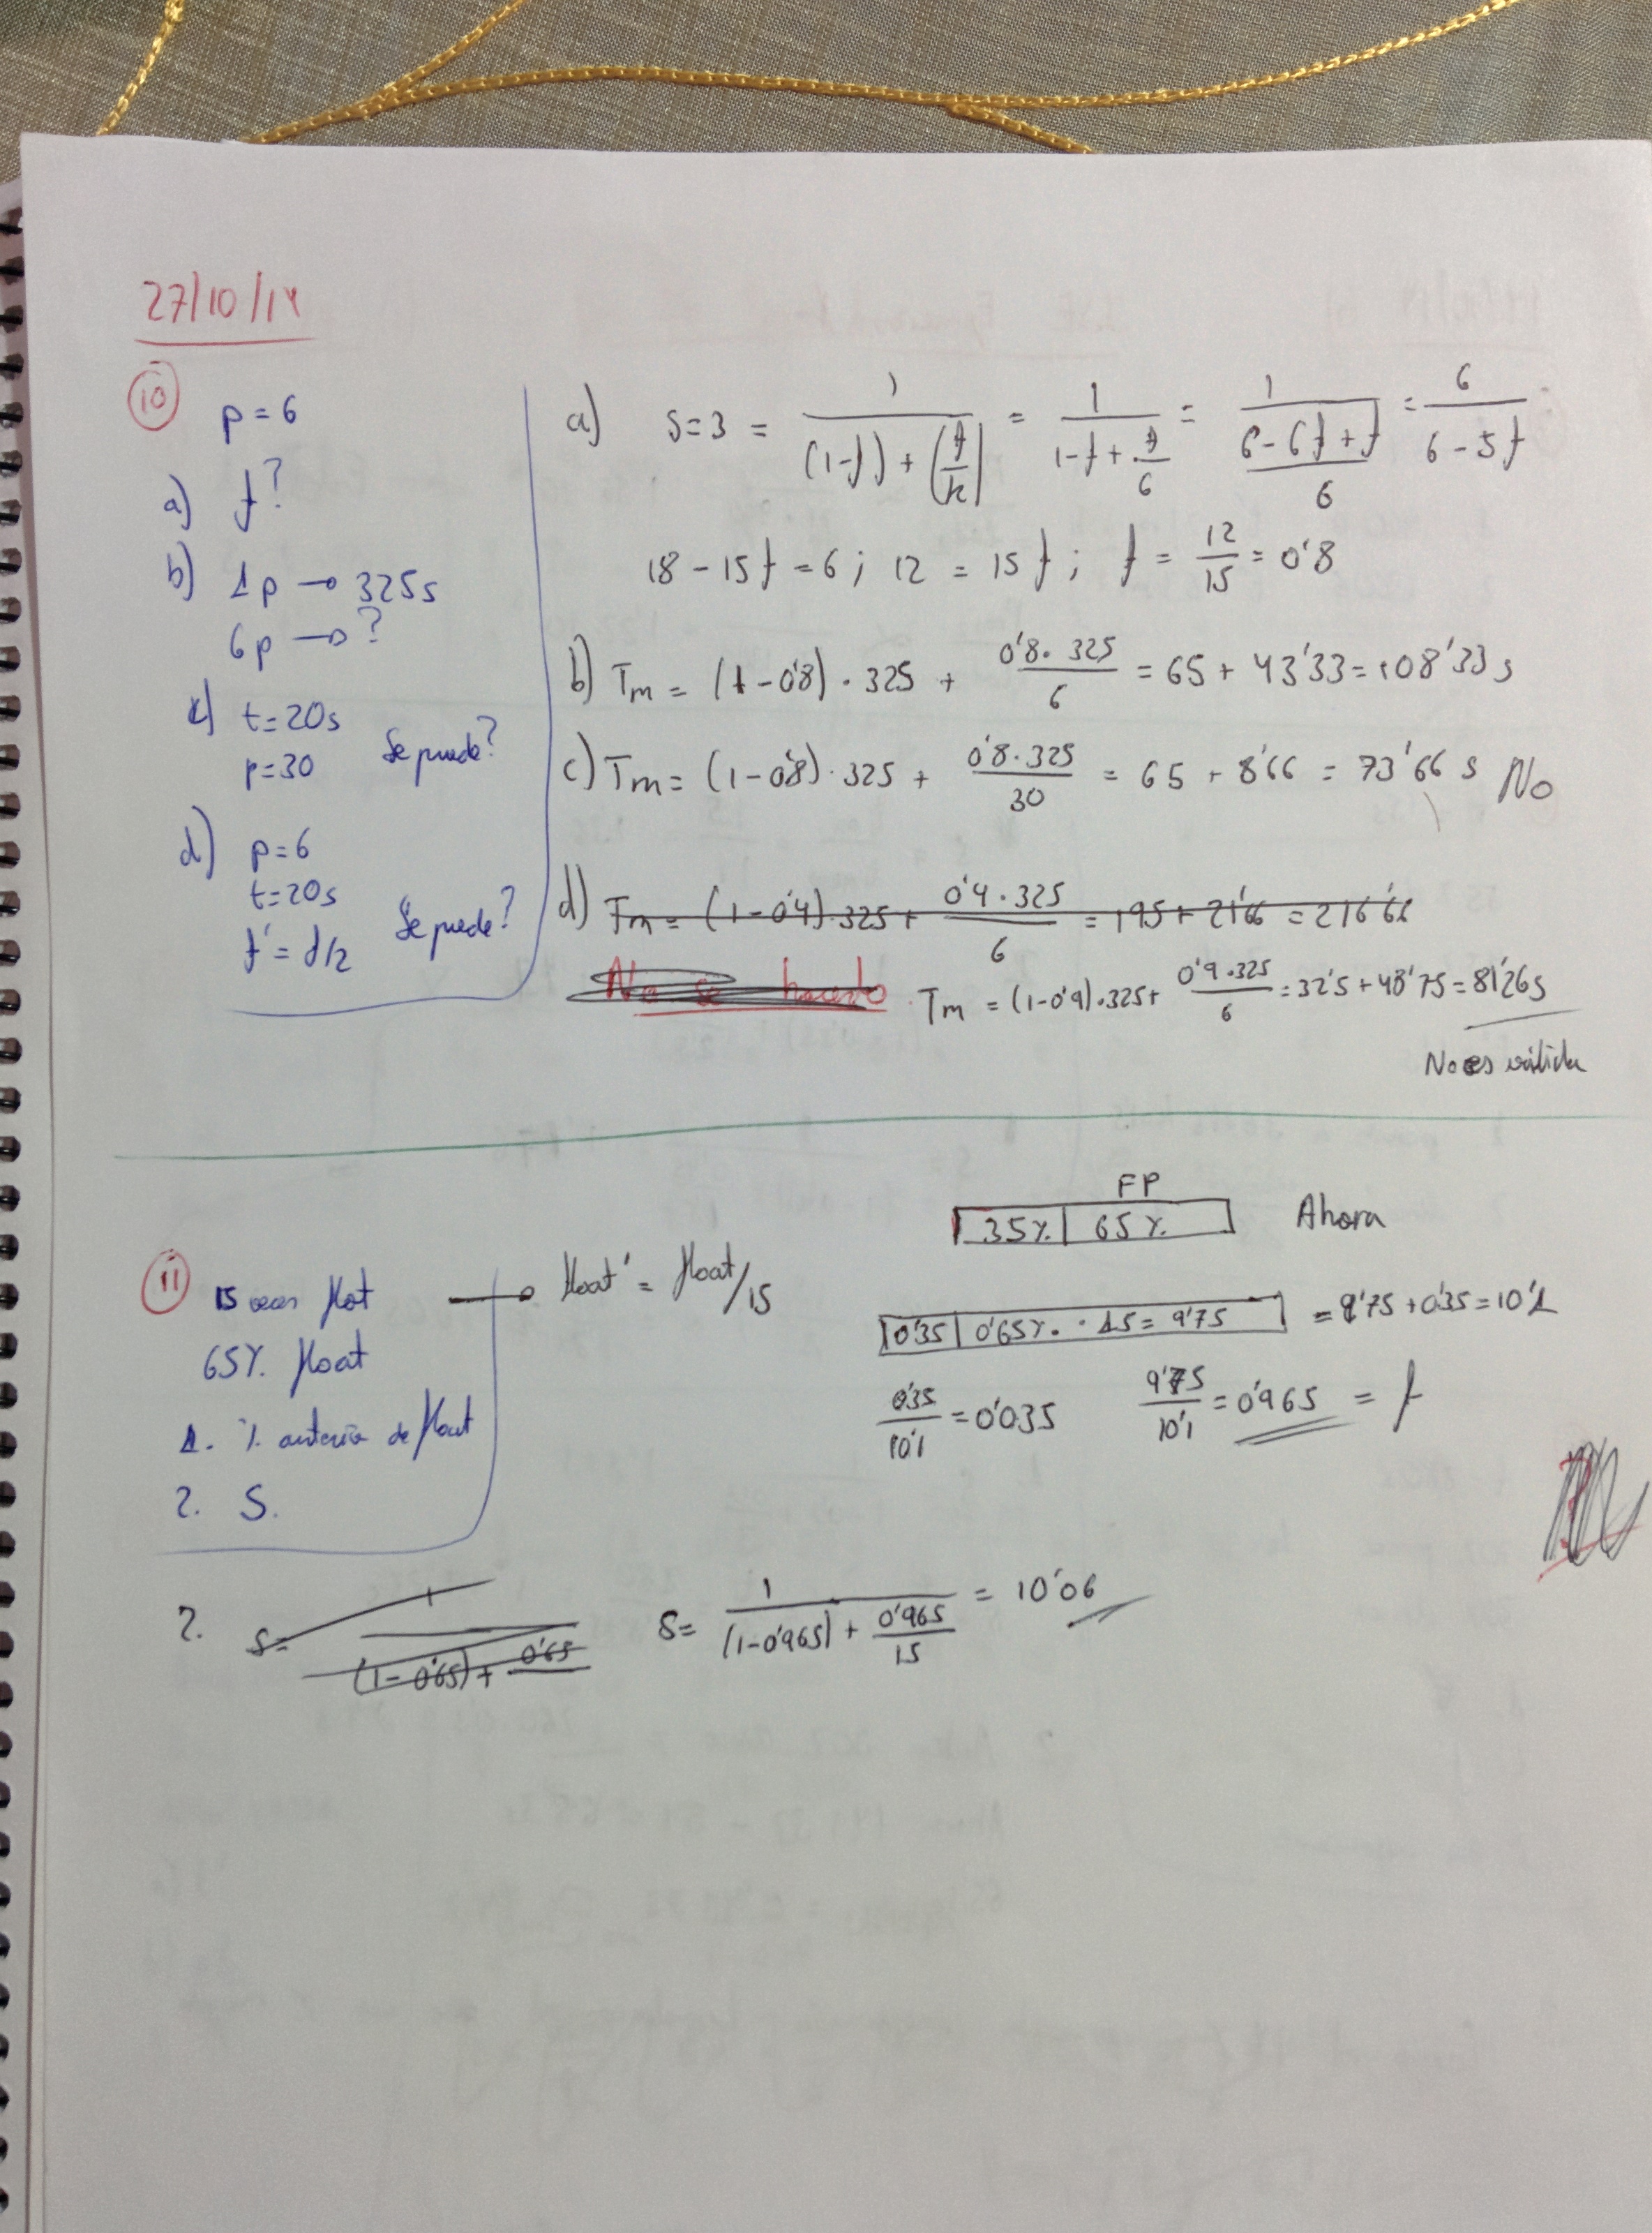 27/10/14
10
p = 6
a) f?
b) 1p → 325s
6p → ?
c) t=20s
p=30 Se puede?
d) p=6
t=20s
f' = f/2 Se puede?
a) S=3 = 1/((1-f)+(f/k)) = 1/(1-f+f/6) = 1/((6-6f+f)/6) = 6/(6-5f)
18-15f=6; 12 = 15f; f = 12/15 = 0'8
b) Tm = (1-0'8)·325 + 0'8·325/6 = 65 + 43'33 = 108'33 s
c) Tm = (1-0'8)·325 + 0'8·325/30 = 65 + 8'66 = 73'66 s No
d) Tm = (1-0'4)·325 + 0'4·325/6 = 195 + 21'66 = 216'66
No se hacerlo Tm = (1-0'9)·325+ 0'9·325/6 = 32'5+48'75=81'26s
No es válida
11
15 veces float → float' = float/15
65% float
1. % anterior de float
2. S.
FP
35% 65% Ahora
0'35 0'65%·15=9'75 = 9'75+0'35=10'1
0'35/10'1 = 0'035 9'75/10'1 = 0'965 = f
2. S= 1/((1-0'65)+0'65 S= 1/((1-0'965)+0'965/15) = 10'06